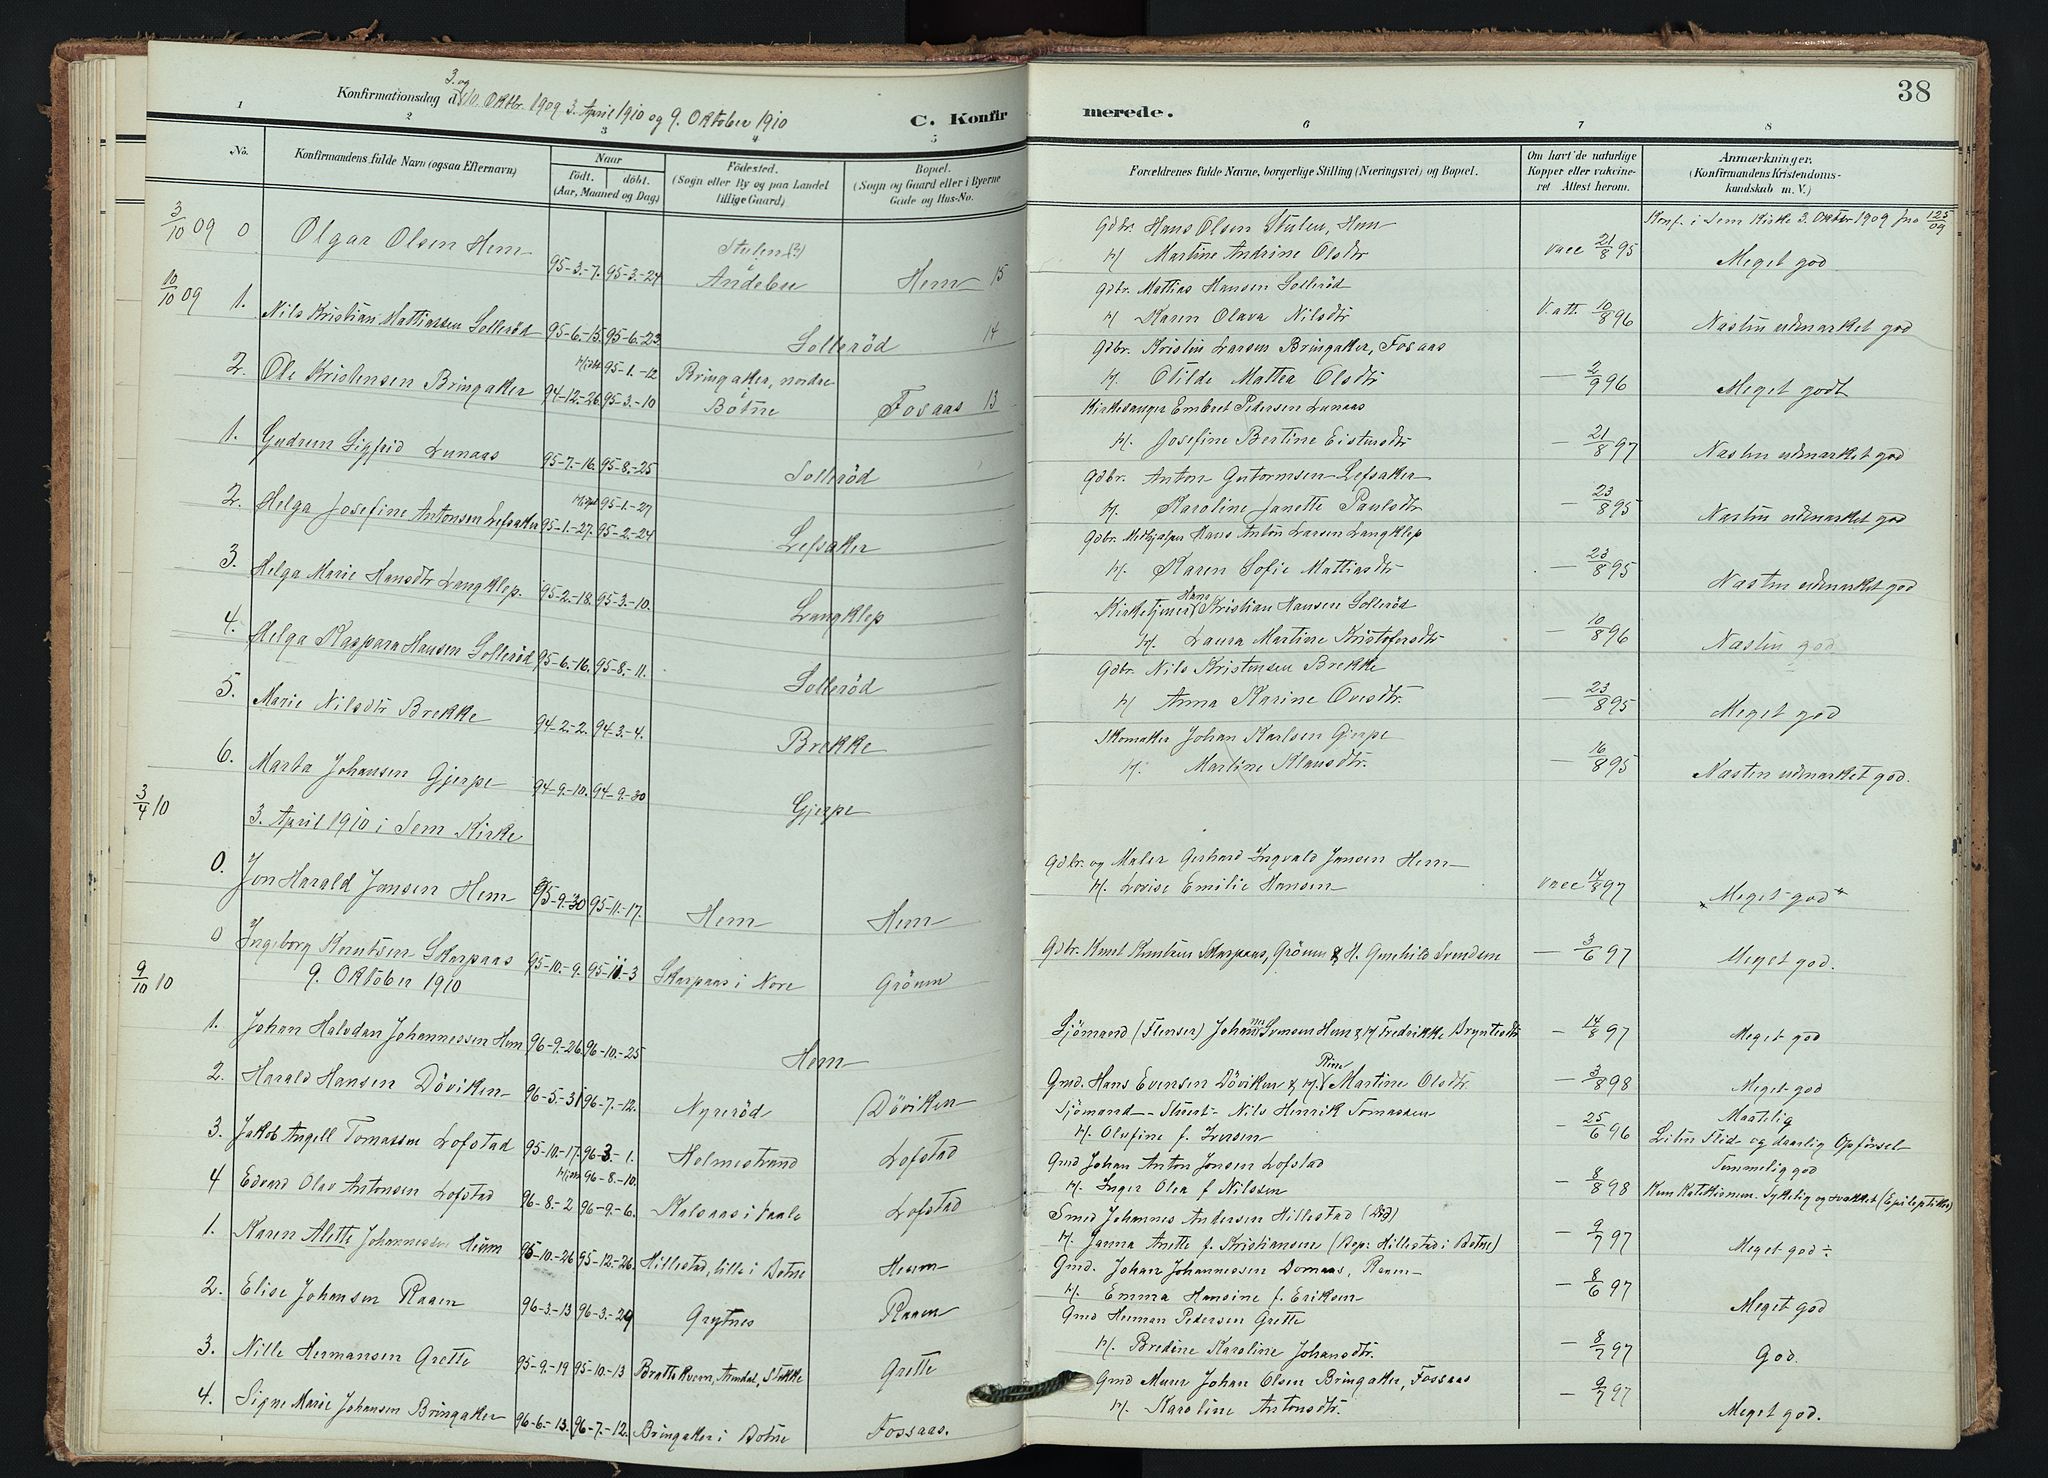 38
3. og
Konfirmationsdag d. 10. Oktbr. 1909 3. April 1910 og 9. Oktober 1910
C. Konfirmerede.
1 2 3 4 5 6 7 8
No.
Konfirmandens fulde Navn (ogsaa Efternavn)
Naar
født. døbt.
(Aar, Maaned og Dag)
Fødested.
(Sogn eller By og paa Landet
tillige Gaard)
Bopæl.
(Sogn og Gaard eller i Byerne
Gade og Hus-No.
Forældrenes fulde Navne, borgerlige Stilling (Næringsvei) og Bopæl.
Om havt de naturlige
Kopper eller vakcine-
ret Attest herom.
Anmærkninger.
(Konfirmandens Kristendoms-
kundskab m. V.)
3/10 09 0 Olgar Olsen Hem 95-3-7. 95-3-24 Stulen (?) i Andebu Hem 15
Gdbr. Hans Olsen Stulen, Hem
H/ Martine Andrine Olsdtr vacc 21/8 95
Konf. i Sem Kirke 3. Oktbr 1909 fra 123/09
Meget god
10/10 09 1. Nils Kristian Mattiassen Sollerød 95-6-15. 95-6-23 Sollerød 14
Gdbr. Mattias Hansen Sollerød
H/ Karen Olava Nilsdtr V. att. 10/8 96 Næsten udmærket god
2. Ole Kristensen Bringaker 94-12-26 Hjdbt 95-1-12 95-3-10 Bringaker, nordre i Botne Fosaas 13
Gdbr. Kristen Larsen Bringaker, Fosaas
H. Otilde Mattea Olsdtr — 2/9 96 Meget godt
1. Gudrun Sigfrid Lunaas 95-7-16. 95-8-25 Sollerød
Kirkesanger Embret Pedersen Lunaas
H. Josefine Bertine Eistensdtr — 21/8 97 Næsten udmærket god
2. Helga Josefine Antonsen Lefsaker 95-1-27. 95-1-27 95-2-24 Lefsaker
Gdbr. Anton Gutormsen Lefsaker
H. Karoline Janette Paulsdtr — 23/8 95 Næsten udmærket god
3. Helga Marie Hansdtr Langklep. 95-2-18. 95-3-10. Langklep
Gdbr. Medhjælper Hans Anton Larsen Langklep
H. Karen Sofie Mattiasdtr — 23/8 95 Næsten udmærket god
4. Helga Kaspara Hansen Sollerød 95-6-16. 95-8-11. Sollerød
Kirketjener Hans Kristian Hansen Sollerød
H. Laura Martine Kristofersdtr — 10/8 96 Næsten god
5. Marie Nilsdtr Brekke 94-2-2. 94-3-4. Brekke
Gdbr. Nils Kristensen Brekke
H/ Anna Karine Ovesdtr. — 23/8 95 Meget god
6. Marta Johansen Gjerpe 94-9-10. 94-9-30 Gjerpe
Skomaker Johan Karlsen Gjerpe
H. Martine Klausdtr. — 16/8 95 Næsten udmærket god.
3/4 10 3. April 1910 i Sem Kirke
0. Jon Harald Jansen Hem 95-9-30 95-11-17. Hem Hem
Gdbr. og Maler Gerhard Ingvald Jansen Hem
H. Lovise Emilie Hansen vacc 14/8 97 Meget god
0 Ingeborg Knutsen Skarpaas 95-10-9. 95-11-3 Skarpaas i Nore Grøum
Gdbr. Knut Knutsen Skarpaas, Grøum & H. Gunhild Svendsen — 3/6 97 Meget god.
9/10 10 9. Oktober 1910
1. Johan Halvdan Johannessen Hem 96-9-26. 96-10-25 Hem
Sjømand (Flenser) Johannes Svensen Hem & H Fredrikke Bryntesdtr — 14/8 97 Meget god
2. Harald Hansen Døviken 96-5-31 96-7-12. Nyrerød Døviken
Gmd. Hans Evensen Døviken & H. Martine Olsdtr — 3/8 98 Meget god
3. Jakob Angell Tomassen Lofstad 95-10-17. 96-3-1. Holmestrand Lofstad
Sjømand - Stuert - Nils Henrik Tomassen
H. Olufine f. Iversen — 25/6 96 Maatelig
Liten Flid og daarlig Opførsel
4 Edvard Olav Antonsen Lofstad 96-8-2 96-8-10. 96-9-6. Kalsaas i Vaale Lofstad
Gmd Johan Anton Jonsen Lofstad
H. Inger Olea f Nilssen — 8/8 98 Temmelig god
Kun Katekismen. Sykelig og svakket (Epileptiker)
1. Karen Alette Johannessen Heum 95-10-26 95-12-26. Hillestad, lille i Botne Heum
Smed Johannes Andersen Hillestad (død)
H. Janna Anette f. Kristiansen (Bop: Hillestad i Botne) — 9/7 97 Meget god ÷
2. Elise Johansen Raaen 96-3-13 96-3-29 Grytnes Raaen
Gmd. Johan Johannessen Domaas, Raaen
H. Emma Hansine f. Eriksen — 8/6 97 Meget god
3. Nille Hermansen Grette 95-9-19 95-10-13 Brattekvern, Arendal, Stokke Grette
Gmd Herman Pedersen Grette
H. Bredine Karoline Johansdtr. — 8/7 97 God.
4. Signe Marie Johansen Bringaker 96-6-13. 96-7-12. Bringaker i Botne Fossaas.
Gmd Murer Johan Olsen Bringaker, Fossaas
H. Karoline Antonsdtr. — 9/7 97 Meget god.